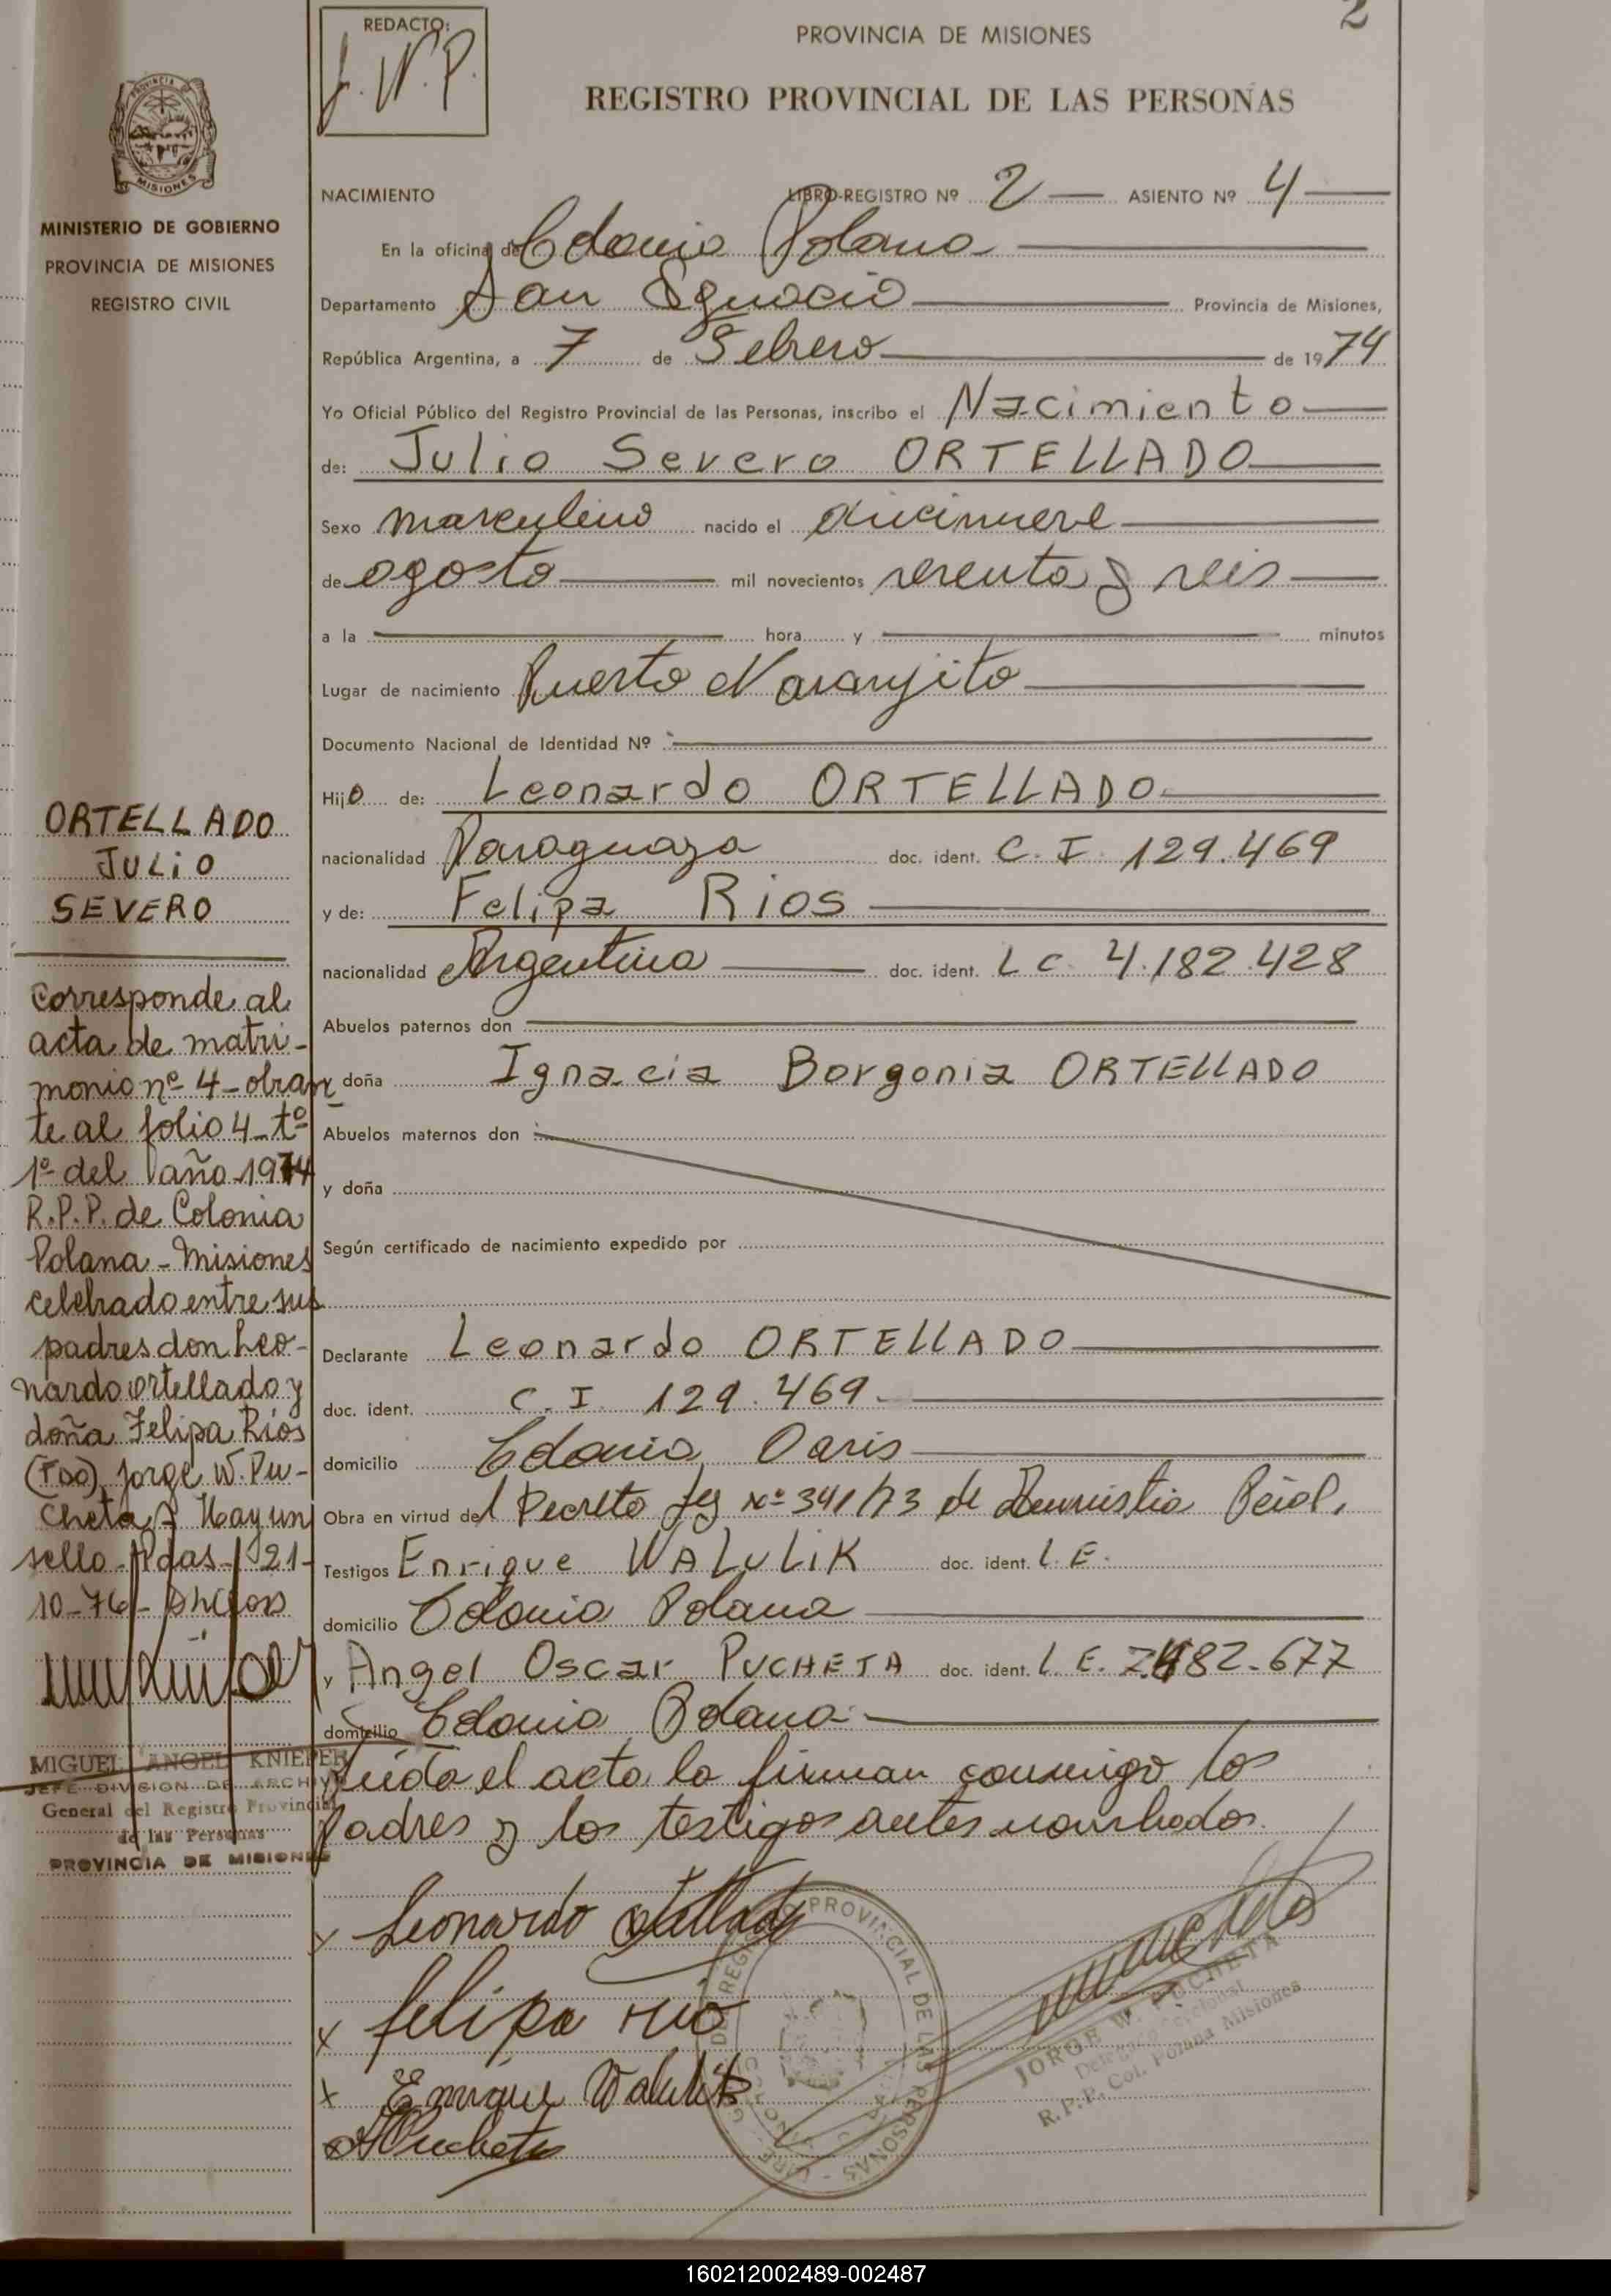 2
REDACTO:
J.W.P.
PROVINCIA DE MISIONES
REGISTRO PROVINCIAL DE LAS PERSONAS
PROVINCIA DE
MISIONES
MINISTERIO DE GOBIERNO
PROVINCIA DE MISIONES
REGISTRO CIVIL
NACIMIENTO LIBRO-REGISTRO Nº 2 ASIENTO Nº 4
En la oficina de Colonia Polana
Departamento San Ignacio Provincia de Misiones,
República Argentina, a 7 de Febrero de 1974
Yo Oficial Público del Registro Provincial de las Personas, inscribo el Nacimiento
de: Julio Severo ORTELLADO
Sexo masculino nacido el diecinueve
de agosto mil novecientos sesenta y seis
a la hora y minutos
Lugar de nacimiento Puerto Naranjito
Documento Nacional de Identidad Nº
Hijo de: Leonardo ORTELLADO
nacionalidad Paraguaya doc. ident. C. I. 129.469
y de: Felipa Rios
nacionalidad Argentina doc. ident. L C. 4.182.428
Abuelos paternos don
y doña Ignacia Borgonia ORTELLADO
Abuelos maternos don
y doña
Según certificado de nacimiento expedido por
Declarante Leonardo ORTELLADO
doc. ident. C. I. 129.469
domicilio Colonia Oasis
Obra en virtud del Decreto Ley Nº 341/73 de Amnistia
Testigos Enrique WALULIK doc. ident. L. E.
domicilio Colonia Polana
y Angel Oscar PUCHETA doc. ident. L. E. 7.482.677
domicilio Colonia Polana
Leida el acta la firman conmigo los
padres y los testigos antes nombrados.
Leonardo Ortellado
felipa rio
Enrique Walulik
A Pucheta
ORTELLADO
JULIO
SEVERO
Corresponde al
acta de matri-
monio nº 4-obran
te al folio 4-tº
1º del año 1974
R.P.P. de Colonia
Polana-Misiones
celebrado entre sus
padres don Leo-
nardo ortellado y
doña Felipa Ríos
(Fdo) Jorge W. Pu-
cheta Hay un
sello-Pdas-21-
10-76-
MIGUEL ANGEL KNIEPER
JEFE DIVISION DE ARCHIVO
General del Registro Provincial
de las Personas
PROVINCIA DE MISIONES
REGISTRO PROVINCIAL DE LAS PERSONAS
JORGE W. PUCHETA
Delegado Seccional
R.P.P. Col. Polana Misiones
160212002489-002487